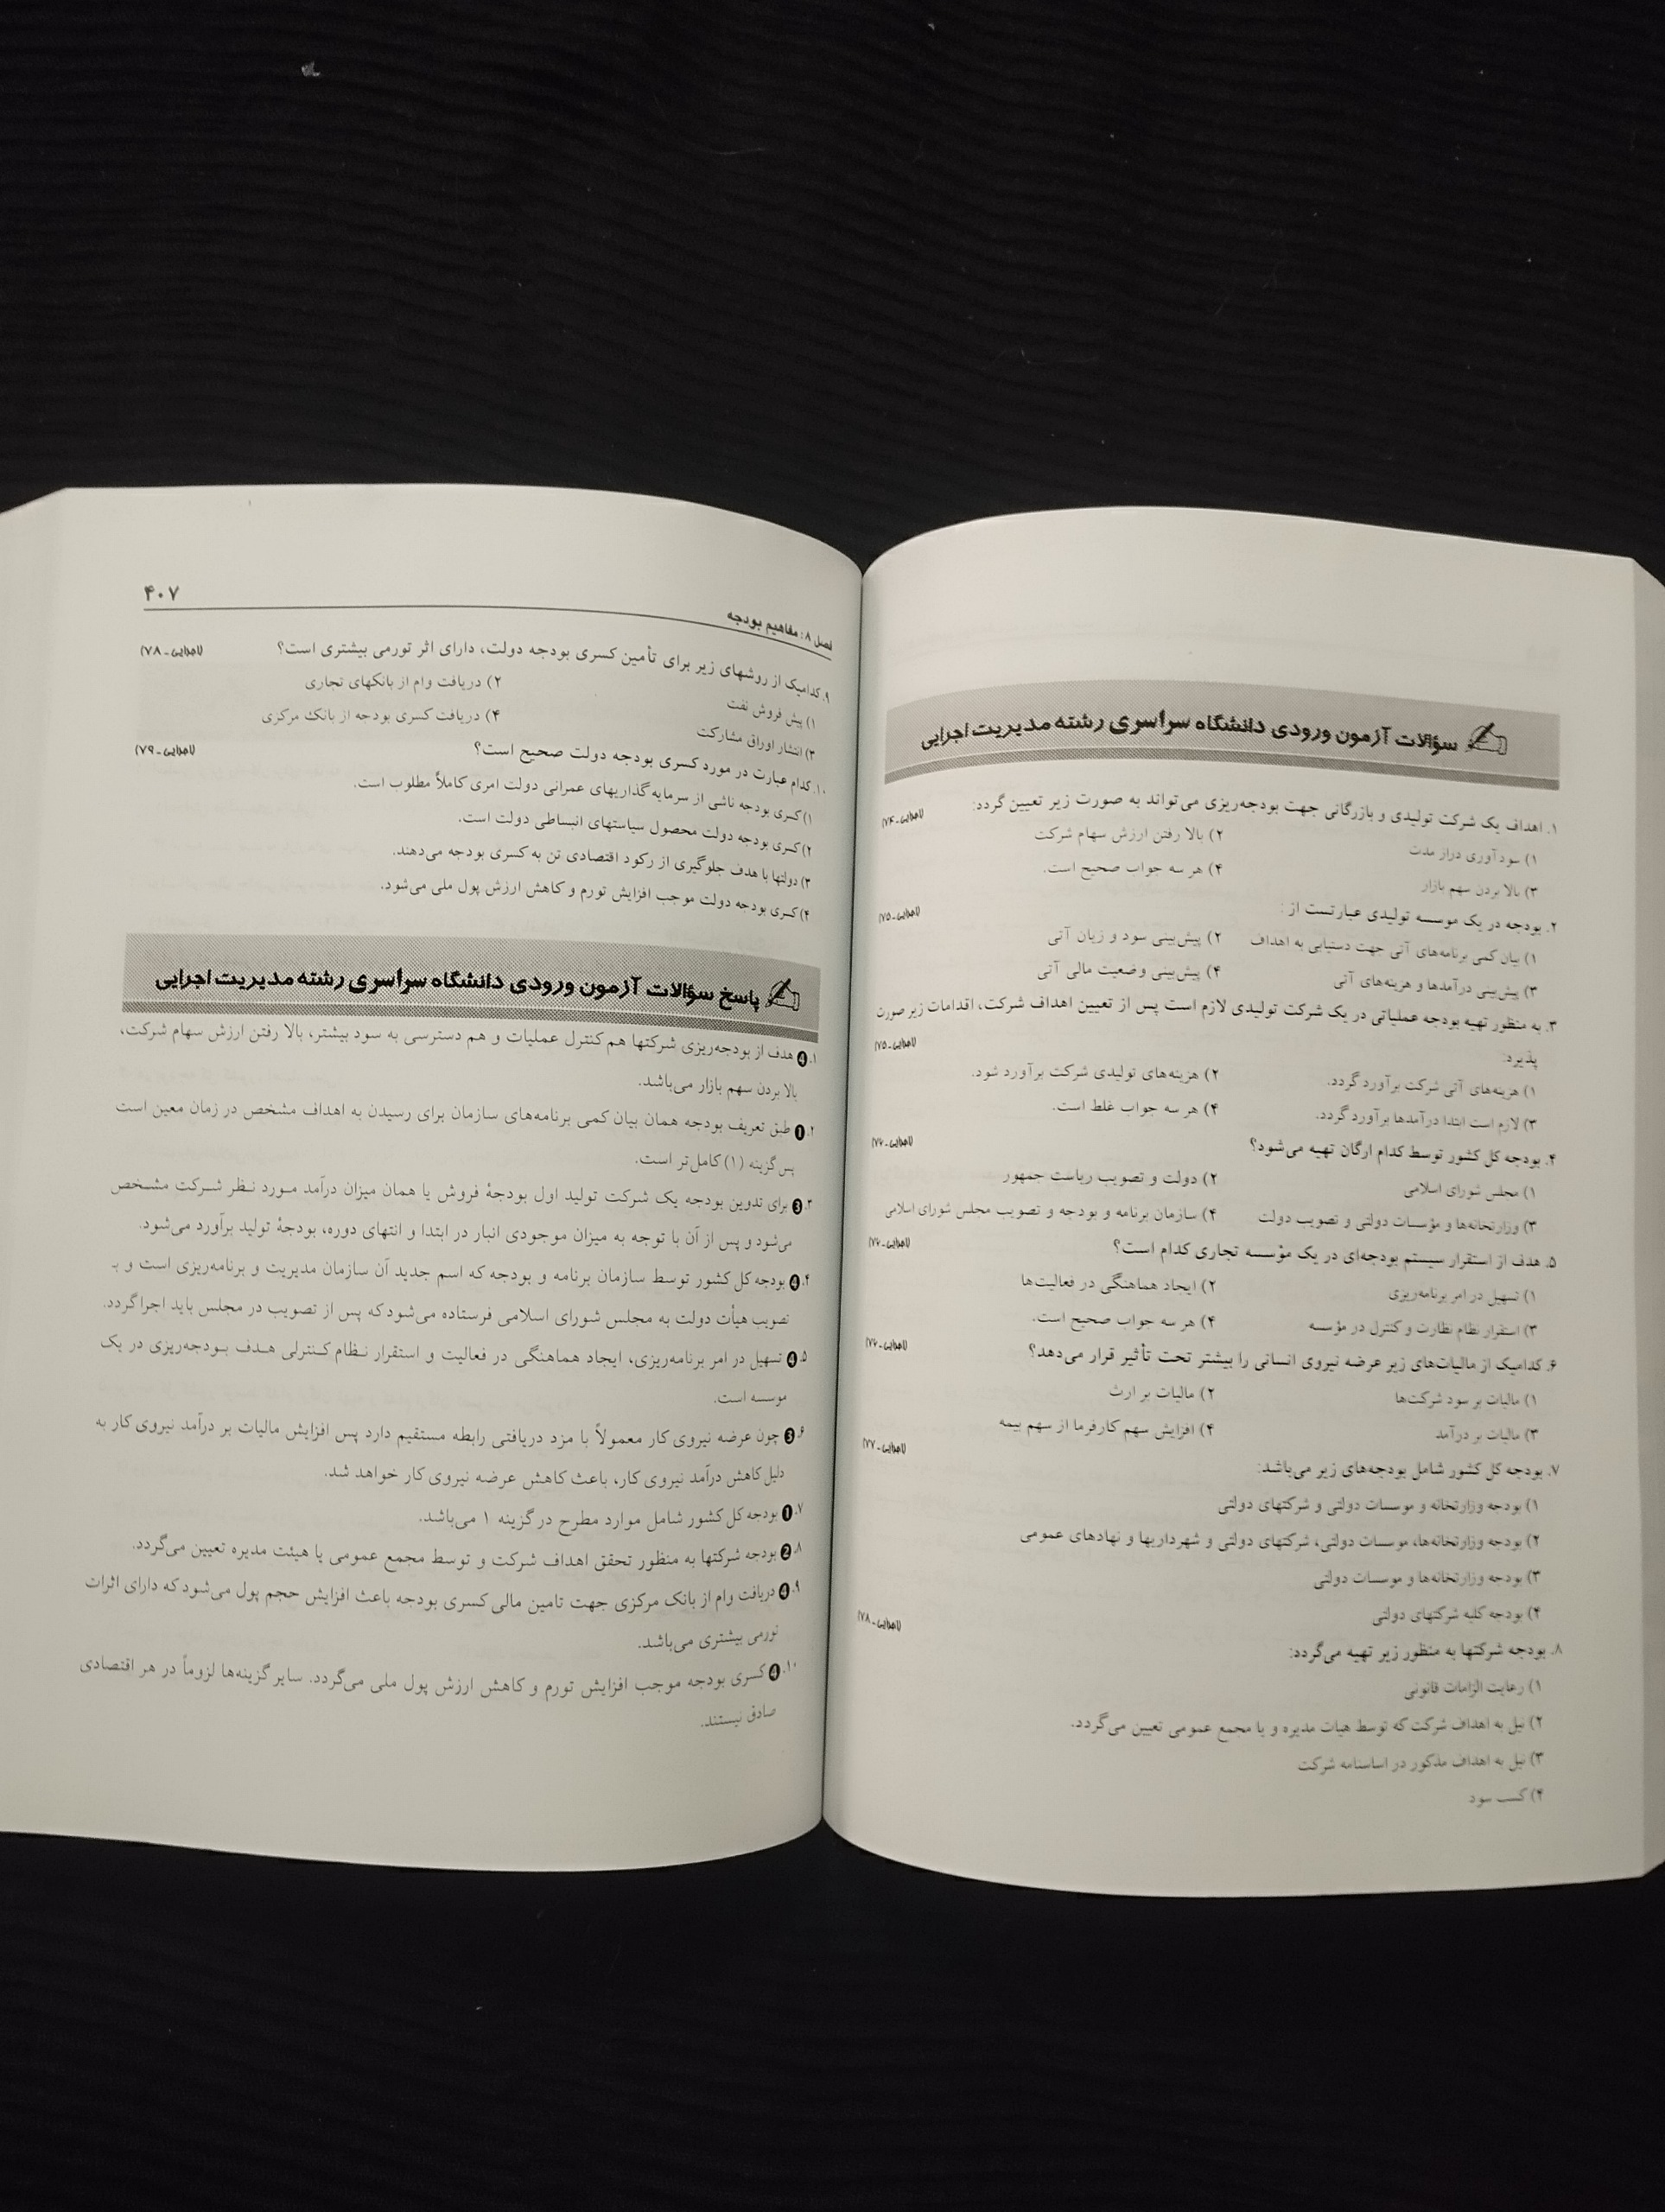 سؤالات آزمون ورودی دانشگاه سراسری رشته مدیریت اجرایی
۱. اهداف یک شرکت تولیدی و بازرگانی جهت بودجه‌ریزی می‌تواند به صورت زیر تعیین گردد: (اجرایی-۷۴)
۱) سودآوری دراز مدت ۲) بالا رفتن ارزش سهام شرکت
۳) بالا بردن سهم بازار ۴) هر سه جواب صحیح است.
۲. بودجه در یک موسسه تولیدی عبارتست از : (اجرایی-۷۵)
۱) بیان کمی برنامه‌های آتی جهت دستیابی به اهداف ۲) پیش‌بینی سود و زیان آتی
۳) پیش‌بینی درآمدها و هزینه‌های آتی ۴) پیش‌بینی وضعیت مالی آتی
۳. به منظور تهیه بودجه عملیاتی در یک شرکت تولیدی لازم است پس از تعیین اهداف شرکت، اقدامات زیر صورت
پذیرد: (اجرایی-۷۵)
۱) هزینه‌های آتی شرکت برآورد گردد. ۲) هزینه‌های تولیدی شرکت برآورد شود.
۳) لازم است ابتدا درآمدها برآورد گردد. ۴) هر سه جواب غلط است.
۴. بودجه کل کشور توسط کدام ارگان تهیه می‌شود؟ (اجرایی-۷۶)
۱) مجلس شورای اسلامی ۲) دولت و تصویب ریاست جمهور
۳) وزارتخانه‌ها و مؤسسات دولتی و تصویب دولت ۴) سازمان برنامه و بودجه و تصویب مجلس شورای اسلامی
۵. هدف از استقرار سیستم بودجه‌ای در یک مؤسسه تجاری کدام است؟ (اجرایی-۷۶)
۱) تسهیل در امر برنامه‌ریزی ۲) ایجاد هماهنگی در فعالیت‌ها
۳) استقرار نظام نظارت و کنترل در مؤسسه ۴) هر سه جواب صحیح است.
۶. کدامیک از مالیات‌های زیر عرضه نیروی انسانی را بیشتر تحت تأثیر قرار می‌دهد؟ (اجرایی-۷۶)
۱) مالیات بر سود شرکت‌ها ۲) مالیات بر ارث
۳) مالیات بر درآمد ۴) افزایش سهم کارفرما از سهم بیمه
۷. بودجه کل کشور شامل بودجه‌های زیر می‌باشد: (اجرایی-۷۷)
۱) بودجه وزارتخانه و موسسات دولتی و شرکتهای دولتی
۲) بودجه وزارتخانه‌ها، موسسات دولتی، شرکتهای دولتی و شهرداریها و نهادهای عمومی
۳) بودجه وزارتخانه‌ها و موسسات دولتی
۴) بودجه کلیه شرکتهای دولتی
۸. بودجه شرکتها به منظور زیر تهیه می‌گردد: (اجرایی-۷۸)
۱) رعایت الزامات قانونی
۲) نیل به اهداف شرکت که توسط هیات مدیره و یا مجمع عمومی تعیین می‌گردد.
۳) نیل به اهداف مذکور در اساسنامه شرکت
۴) کسب سود
فصل ۸: مفاهیم بودجه ۴۰۷
۹. کدامیک از روشهای زیر برای تأمین کسری بودجه دولت، دارای اثر تورمی بیشتری است؟ (اجرایی-۷۸)
۱) پیش فروش نفت ۲) دریافت وام از بانکهای تجاری
۳) انتشار اوراق مشارکت ۴) دریافت کسری بودجه از بانک مرکزی
۱۰. کدام عبارت در مورد کسری بودجه دولت صحیح است؟ (اجرایی-۷۹)
۱) کسری بودجه ناشی از سرمایه‌گذاریهای عمرانی دولت امری کاملاً مطلوب است.
۲) کسری بودجه دولت محصول سیاستهای انبساطی دولت است.
۳) دولتها با هدف جلوگیری از رکود اقتصادی تن به کسری بودجه می‌دهند.
۴) کسری بودجه دولت موجب افزایش تورم و کاهش ارزش پول ملی می‌شود.
پاسخ سؤالات آزمون ورودی دانشگاه سراسری رشته مدیریت اجرایی
۱. ❹ هدف از بودجه‌ریزی شرکتها هم کنترل عملیات و هم دسترسی به سود بیشتر، بالا رفتن ارزش سهام شرکت،
بالا بردن سهم بازار می‌باشد.
۲. ❶ طبق تعریف بودجه همان بیان کمی برنامه‌های سازمان برای رسیدن به اهداف مشخص در زمان معین است
پس گزینه (۱) کامل‌تر است.
۳. ❸ برای تدوین بودجه یک شرکت تولید اول بودجهٔ فروش یا همان میزان درآمد مورد نظر شرکت مشخص
می‌شود و پس از آن با توجه به میزان موجودی انبار در ابتدا و انتهای دوره، بودجهٔ تولید برآورد می‌شود.
۴. ❹ بودجه کل کشور توسط سازمان برنامه و بودجه که اسم جدید آن سازمان مدیریت و برنامه‌ریزی است و بـ
تصویب هیأت دولت به مجلس شورای اسلامی فرستاده می‌شود که پس از تصویب در مجلس باید اجرا گردد.
۵. ❹ تسهیل در امر برنامه‌ریزی، ایجاد هماهنگی در فعالیت و استقرار نظام کنترلی هدف بودجه‌ریزی در یک
موسسه است.
۶. ❸ چون عرضه نیروی کار معمولاً با مزد دریافتی رابطه مستقیم دارد پس افزایش مالیات بر درآمد نیروی کار به
دلیل کاهش درآمد نیروی کار، باعث کاهش عرضه نیروی کار خواهد شد.
۷. ❶ بودجه کل کشور شامل موارد مطرح در گزینه ۱ می‌باشد.
۸. ❷ بودجه شرکتها به منظور تحقق اهداف شرکت و توسط مجمع عمومی یا هیئت مدیره تعیین می‌گردد.
۹. ❹ دریافت وام از بانک مرکزی جهت تامین مالی کسری بودجه باعث افزایش حجم پول می‌شود که دارای اثرات
تورمی بیشتری می‌باشد.
۱۰. ❹ کسری بودجه موجب افزایش تورم و کاهش ارزش پول ملی می‌گردد. سایر گزینه‌ها لزوماً در هر اقتصادی
صادق نیستند.